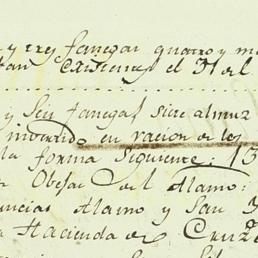 y trej fanegas quatro y m
tan Existenes el 31 de l
y Seis fanegas siete almuz
invertido en racion de los
la forma Siguiente: 13
Obejas del Alamo:
ncias Alamo y San J
a Hacienda de Cruz